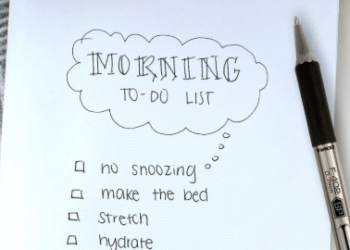 MORNING
TO-DO LIST
no snoozing
make the bed
stretch
hydrate
F-402